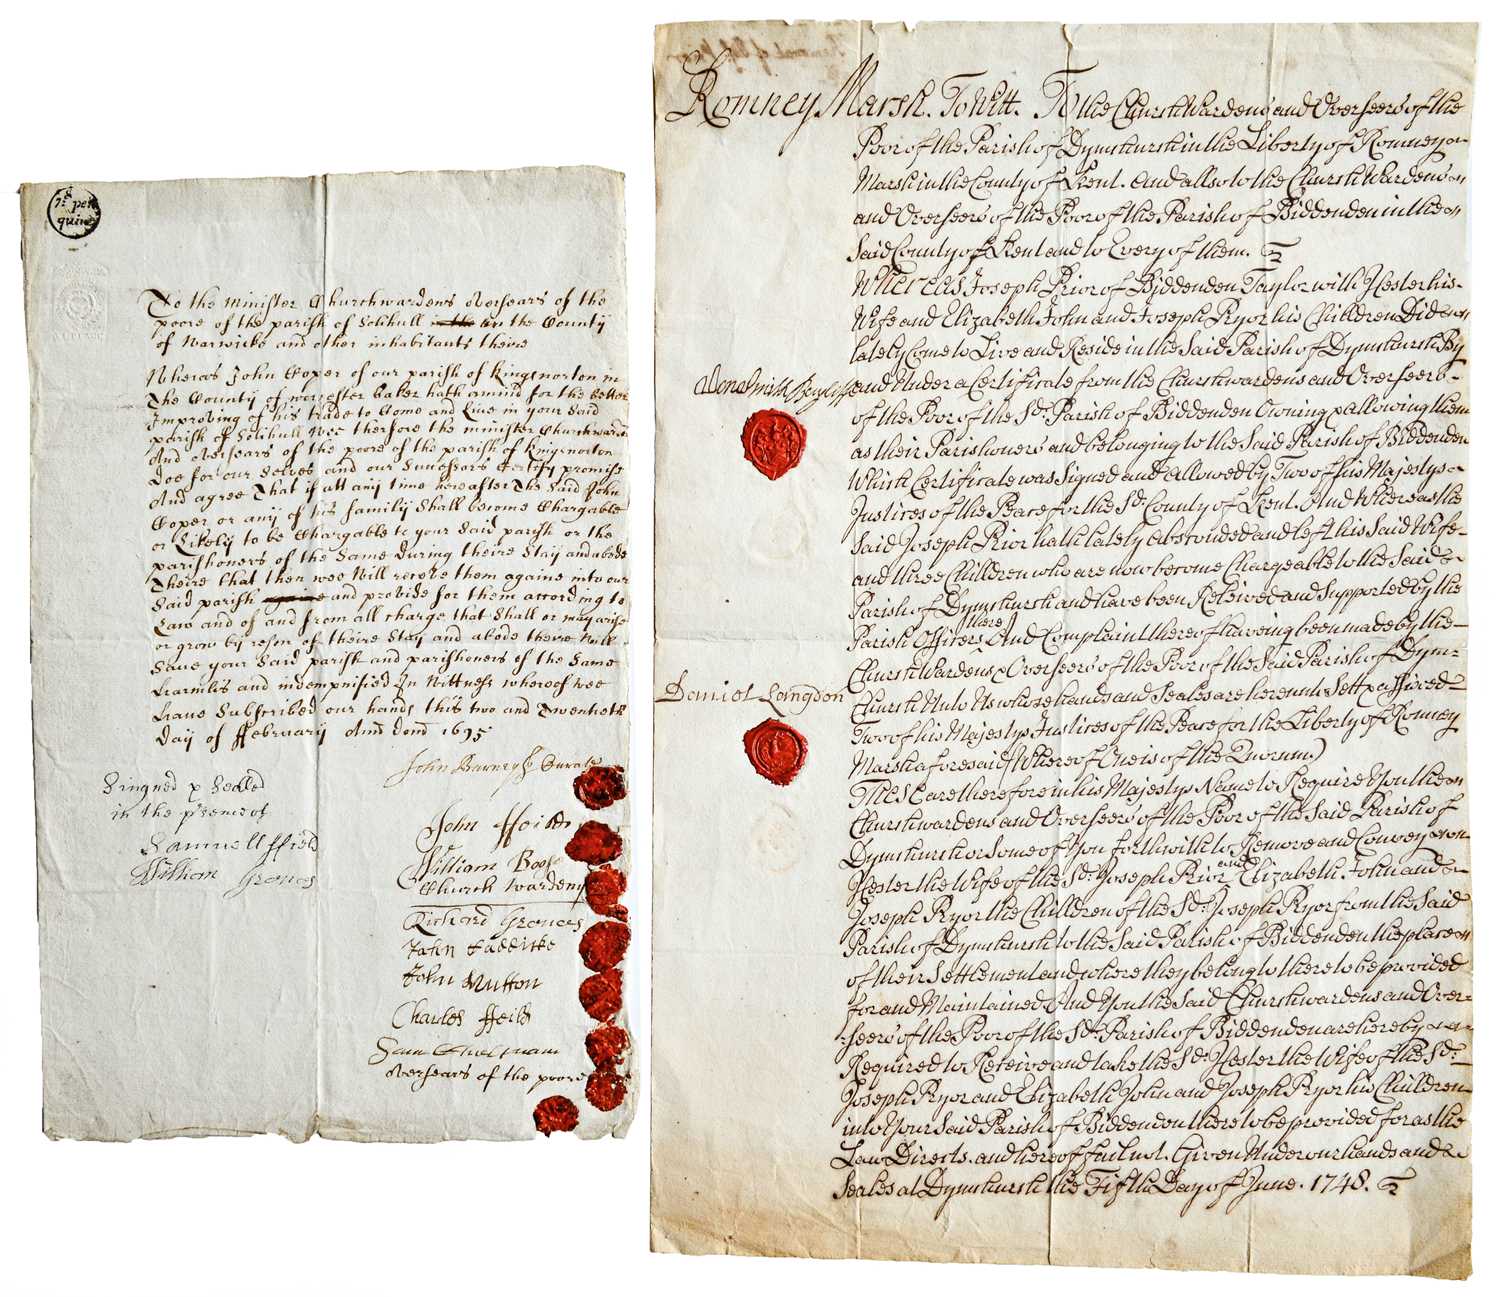 To the Minister Churchwardens oversears of the
poore of the parish of Solihull in the County
of Warwicke and other inhabitants theire
Wheras John Coper of our parish of Kingsnorton in
The County of worcester baker hath a mind for the better
Improving of his trade to Come and Live in your Said
parish of Solihull Wee therfore the minister Churchwardens
And oversears of the poore of the parish of kingsnorton
Doe for our Selves and our Sucessars Certify promise
And agree That if att any time hereafter The Said John
Coper or any of his family Shall become Chargable
or Likely to be Chargable to your Said parish or the
parishoners of the Same during theire Stay and abode
Theire that then wee Will receve them againe into our
Said parish and provide for them according to
Law and of and from all charge that Shall or may arise
or grow by reson of theire Stay and abode theire Will
Save your Said parish and parishoners of the Same
harmles and indempnified In Wittness whereof wee
have Subscribed our hands this two and Twentieth
Day of ffebruary Anno domi 1695
John Curate
Singned & Sealled
in the presenc of
Samuell ffield
William Groves
John ffeild
William
Church wardens
Richard Groves
John
John Mutton
Charles ffeild
Sam
Oversears of the poore
Romney Marsh. To Witt. To the Churchwardens and Overseers of the
Poor of the Parish of Dymchurch in the Liberty of Romney
Marsh in the County of Kent. And allso to the Church Wardens
and Overseers of the Poor of the Parish of Biddenden in the
Said County of Kent and to Every of them.
Whereas Joseph Prior of Biddenden Taylor with Hester his
Wife and Elizabeth John and Joseph Pryor his Children Did
lately Come to Live and Reside in the Said Parish of Dymchurch By
and Under a Certificate from the Churchwardens and Overseers
of the Poor of the Sd. Parish of Biddenden Owning & allowing them
as their Parishoners and belonging to the Said Parish of Biddenden
Which Certificate was Signed and allowed by Two of his Majestys
Justices of the Peace for the Sd. County of Kent. And Whereas the
Said Joseph Prior hath lately Absconded and left his Said Wife
and three Children who are now become Chargeable to the Said
Parish of Dymchurch and have been Received and Supported by the
Parish Officers there And Complaint thereof haveing been made by the
Church Wardens & Overseers of the Poor of the Said Parish of Dym-
Daniel Langdon
Church Unto Us whose hands and Seales are hereunto Sett & affixed
Two of his Majestys Justices of the Peace for the Liberty of Romney
Marsh aforesaid (Whereof One is of the Quorum)
These are therefore in his Majestys Name to Require You the
Churchwardens and Overseers of the Poor of the Said Parish of
Dymchurch or Some of You forthwith to Remove and Convey
Hester the Wife of the Sd. Joseph Prior and Elizabeth John and
Joseph Pryor the Children of the Sd. Joseph Pryor from the Said
Parish of Dymchurch to the Said Parish of Biddenden the place
of their Settlement and where they belong to there to be provided
for and Maintained And You the Said Churchwardens and Over-
seers of the Poor of the Sd. Parish of Biddenden are hereby
Required to Receive and take the Sd. Hester the Wife of the Sd.
Joseph Pryor and Elizabeth John and Joseph Pryor his Children
into Your Said Parish of Biddenden there to be provided for as the
Law Directs. and hereof fail not. Given Under our hands and
Seales at Dymchurch the Fifth Day of June. 1748.